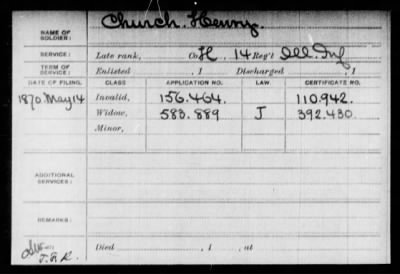 NAME OF SOLDIER: Church, Henry.
SERVICE: Late rank, Co. H, 14 Reg't Ill. Inf.
TERM OF SERVICE: Enlisted , 1 Discharged , 1
DATE OF FILING. CLASS APPLICATION NO. LAW. CERTIFICATE NO.
1870 May 14 Invalid, 156.464. 110.942.
Widow, 583.889 J 392.430.
Minor,
ADDITIONAL SERVICES:
REMARKS:
Died , 1 , at